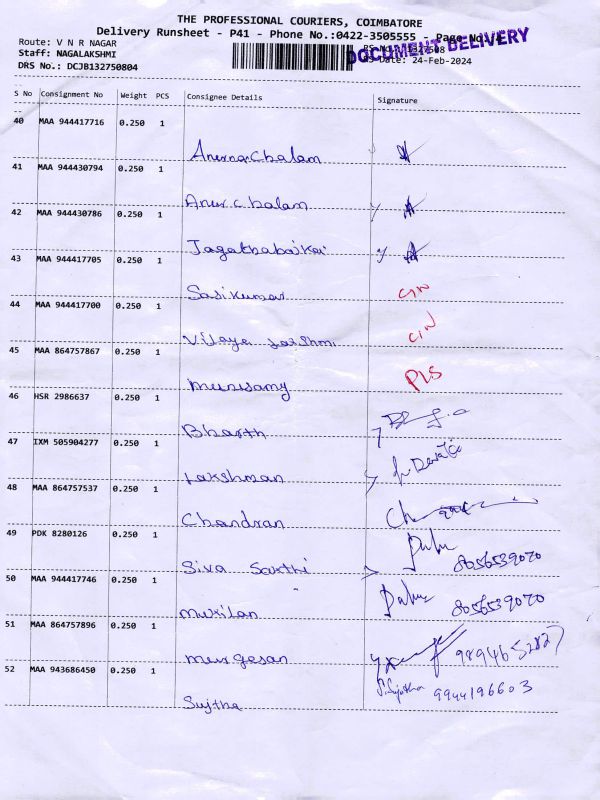 THE PROFESSIONAL COURIERS, COIMBATORE
Delivery Runsheet - P41 - Phone No.:0422-3505555 - Page No.:
Route: V N R NAGAR
DOCUMENT DELIVERY
Staff: NAGALAKSHMI
DRS No.: DCJB132750804
RS Date: 24-Feb-2024
S No Consignment No Weight PCS Consignee Details Signature
40 MAA 944417716 0.250 1
Arunachalam
41 MAA 944430794 0.250 1
Arun chalam
42 MAA 944430786 0.250 1
Jagathabaikai
43 MAA 944417705 0.250 1
Sasikumar
44 MAA 944417700 0.250 1
Vijaya Lakshmi
45 MAA 864757867 0.250 1
Munisamy PLS
46 HSR 2986637 0.250 1
Bharth
47 IXM 505904277 0.250 1
Lakshman
48 MAA 864757537 0.250 1
Chandran
49 PDK 8280126 0.250 1
Siva Sakthi 8056539070
50 MAA 944417746 0.250 1
Mukilan 8056539070
51 MAA 864757896 0.250 1
Murgesan 9894652827
52 MAA 943686450 0.250 1
Sujtha S. Sujitha 9944196603